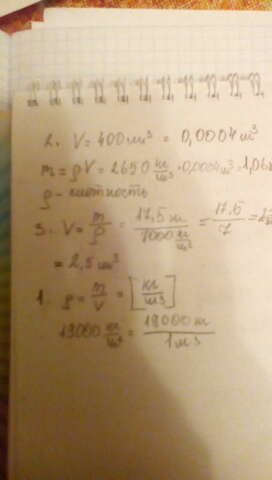 2. V = 400 см³ = 0,0004 м³
m = ρV = 2650 кг/м³ · 0,0004 м³ = 1,06
ρ - плотность
3. V = m/ρ = 17,5 т / 7000 кг/м³ = 17,5/7 =
= 2,5 м³
1. ρ = m/V = [кг/м³]
19000 кг/м³ = 19000 кг / 1 м³